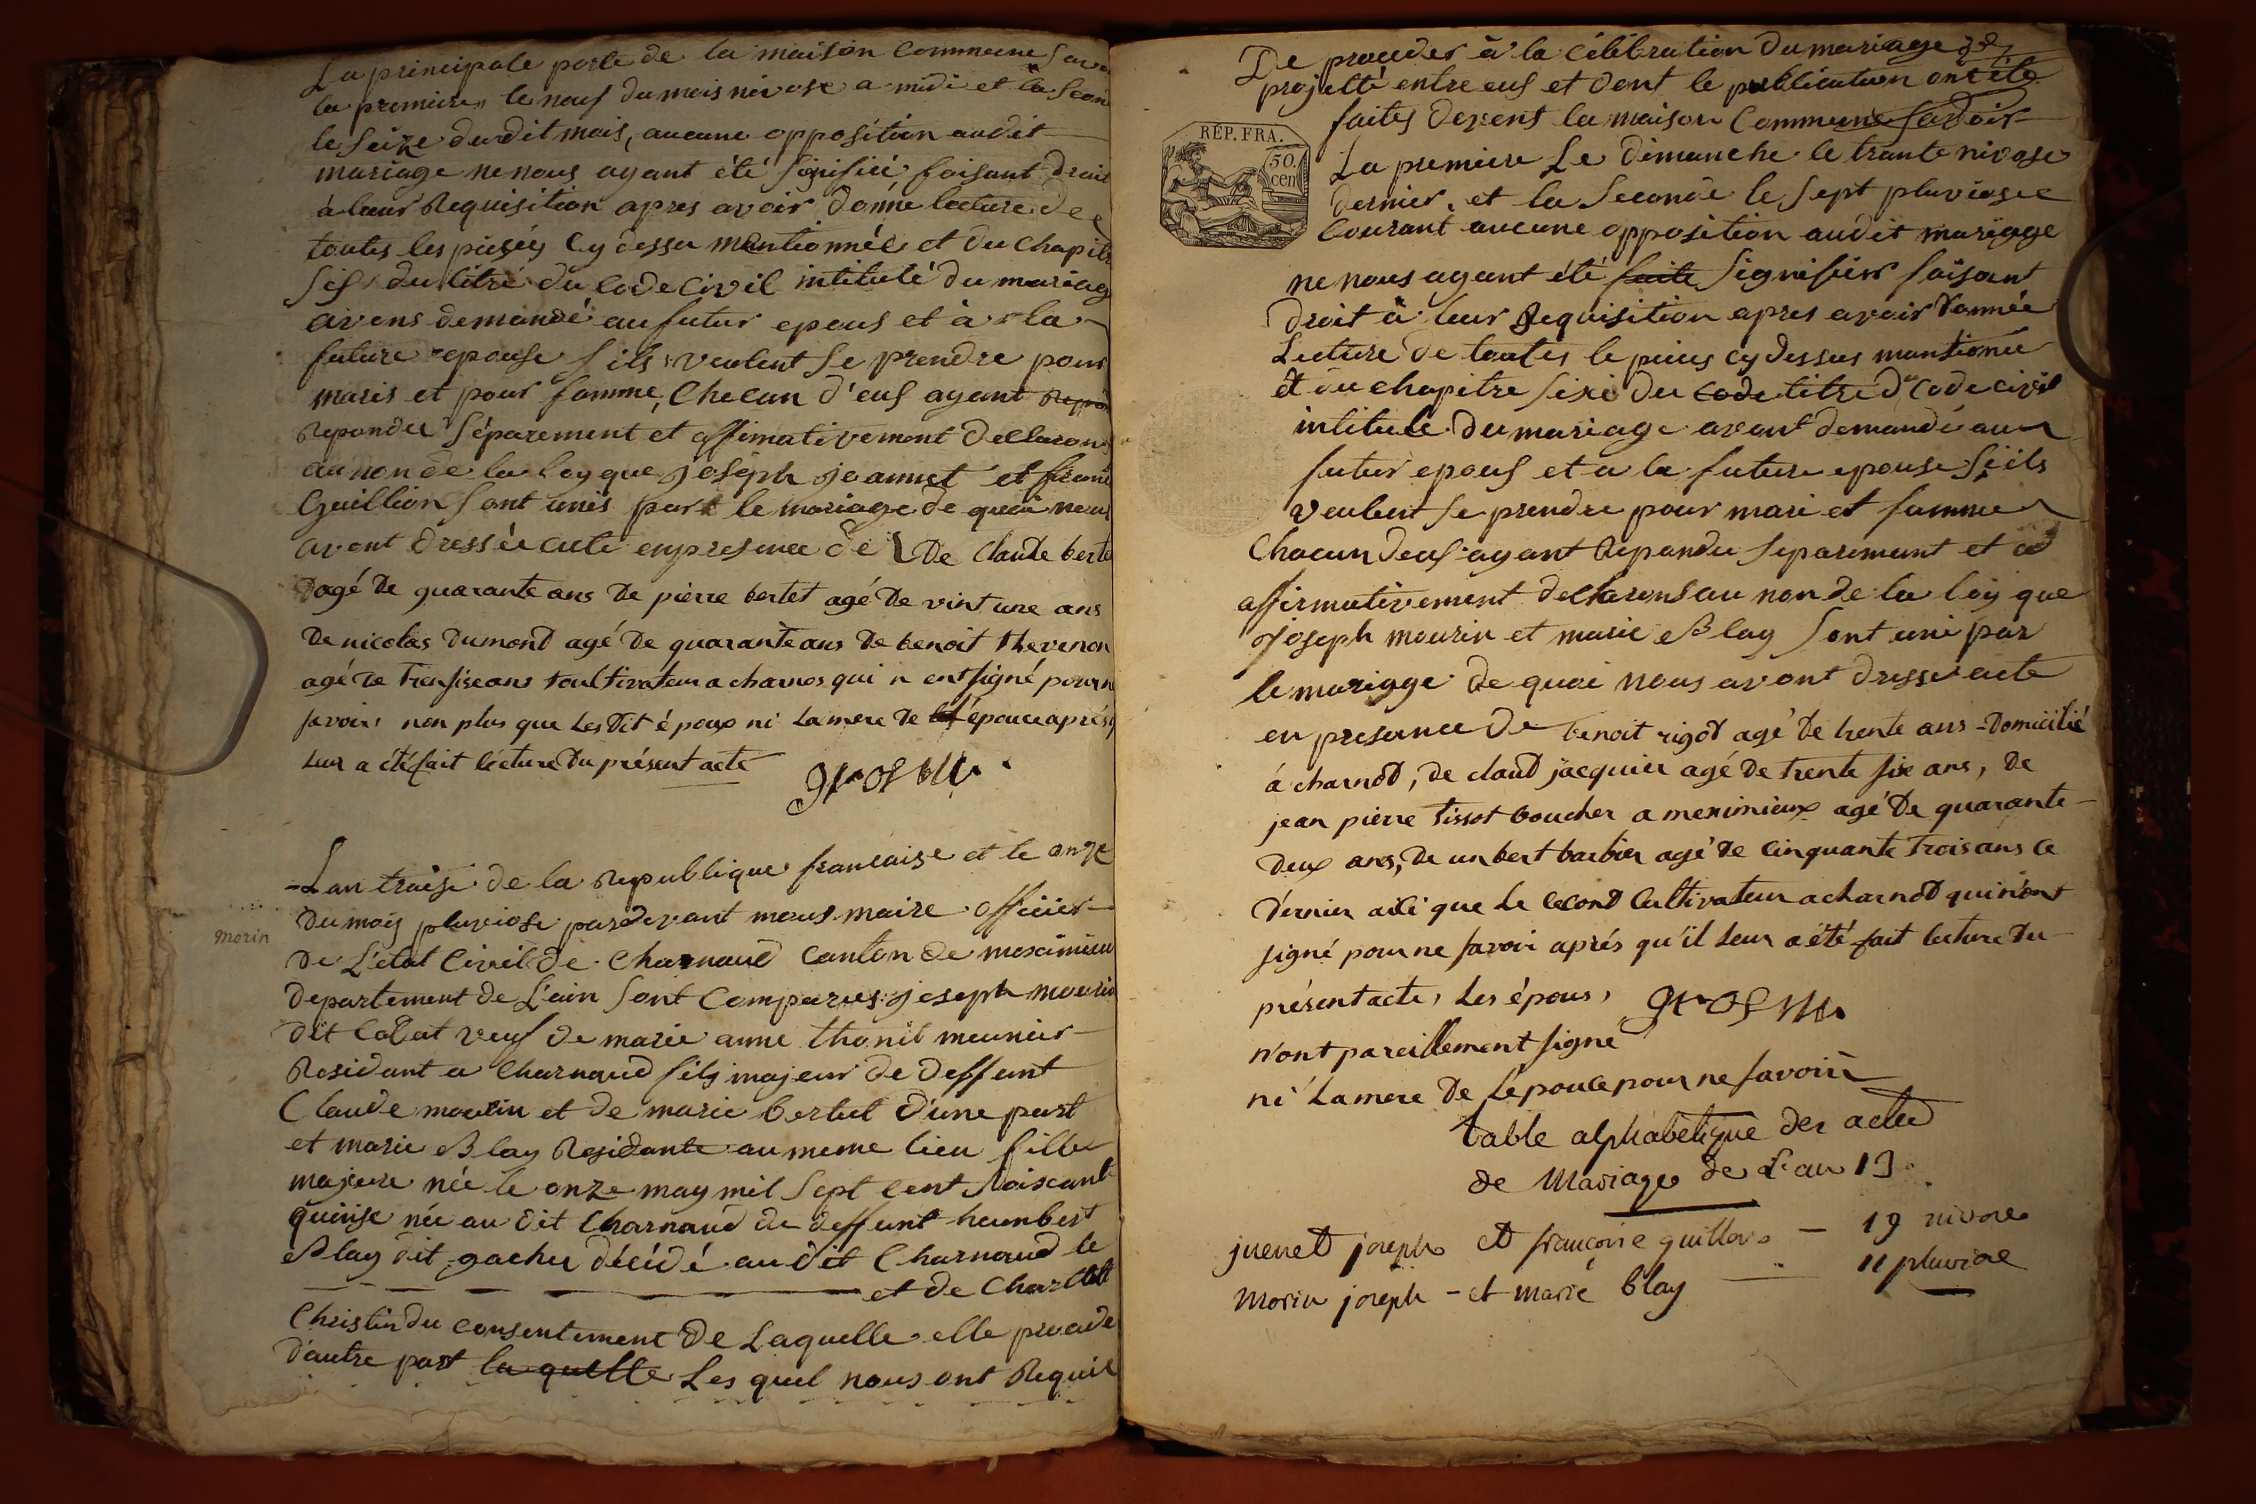 La principale porte de la maison Commune Savo
la premiere, le neuf du mois nivose a midi et la Secon
le Seize dudit mois, aucune opposition audit
mariage ne nous ayant été signifiée faisant droit
à leur Requisition apres avoir donné lecture de
toutes les piesey Cy dessu mentionnée et du chapitre
Sis du titre du Code Civil intitulé du mariag
avons demandé au futur epous et à la
future epouse S'ils veulent Se prendre pour
maris et pour famme, Checun d'eus ayant Repon
Repondu Séparement et affimativement Declarons
au non de la loy que joseph joannet et
Guillion Sont unis par le mariage de quoi nous
avont dressée acte en presence de De Claude berte
agé de quarante ans de pierre bertet agé de vint une ans
de nicolas dumond agé de quarante ans de benoit thevenon
agé de trensise ans toultivateur a charnos qui n ent signé pour n
savoir, non plus que Les dit époux ni La mere de épouce aprés
leur a été fait lécture du présent acte
L'an traise de la Republique francaise et le onze
Du mois pluviose pardevant nous maire officier
morin
De L'etat Civil de Charnaud Canton de meximieu
departement de L'ain Sont Comparus joseph mourin
dit Cadat veuf de marie anne thonit meunier
Residant a Charnaud fils majeur de deffunt
Claude mourin et de marie bertet d'une part
et marie Blay Residante au meme lieu fille
majeure née le onze may mil Sept Cent Soiscante
quinse née au dit Charnaud de deffunt heumbert
Blay dit gachu décédé au dit Charnaud le
et de Charlotte
Christin du consentement de Laquelle elle procede
d'autre part la quelle Les quel nous ont Requis
De proceder à la Célébration du mariage
projetté entre eus et dont le publication ont été
faites devens la maison Commune Savoir
RÉP. FRA.
50 cen
La premiere Le dimanche le trante nivose
dernier, et la Seconde le Sept pluviose
Courant aucune opposition audit mariage
ne nous ayant été faite Signifier faisant
droit à leur Requisition apres avoir donnée
Lecture de toutes le pieces cy dessus mantionée
et du chapitre Sixe du code titre du code civil
intitule du mariage avont demandé au
futur epous et a la future epouse S'ils
veulent se prendre pour mari et famme
Chacun deus ayant Repondu Separemant et
affirmativement declarons au non de la loy que
Joseph mourin et marie Blay Sont uni par
le mariage de quoi nous avont dresse acte
en presence De benoit rigod agé de trente ans Domicilié
à charnod, de claud jacquier agé de trente six ans, de
jean pierre tissot boucher a meximieux agé de quarante
deux ans, de unbert barbier agé de cinquante trois ans ce
dernier aisi que Le cecond Cultivateur a charnod qui n'ont
signé pour ne savoir aprés qu'il leur a été fait lecture du
présent acte, Les épous,
n'ont pareillement signé
ni La mere de L'épouce pour ne savoir
table alphabetique des actes
de Mariages de L'an 13.
juenet joseph et francoise guillon — 19 nivose
Morin joseph — et marie blay — 11 pluviose